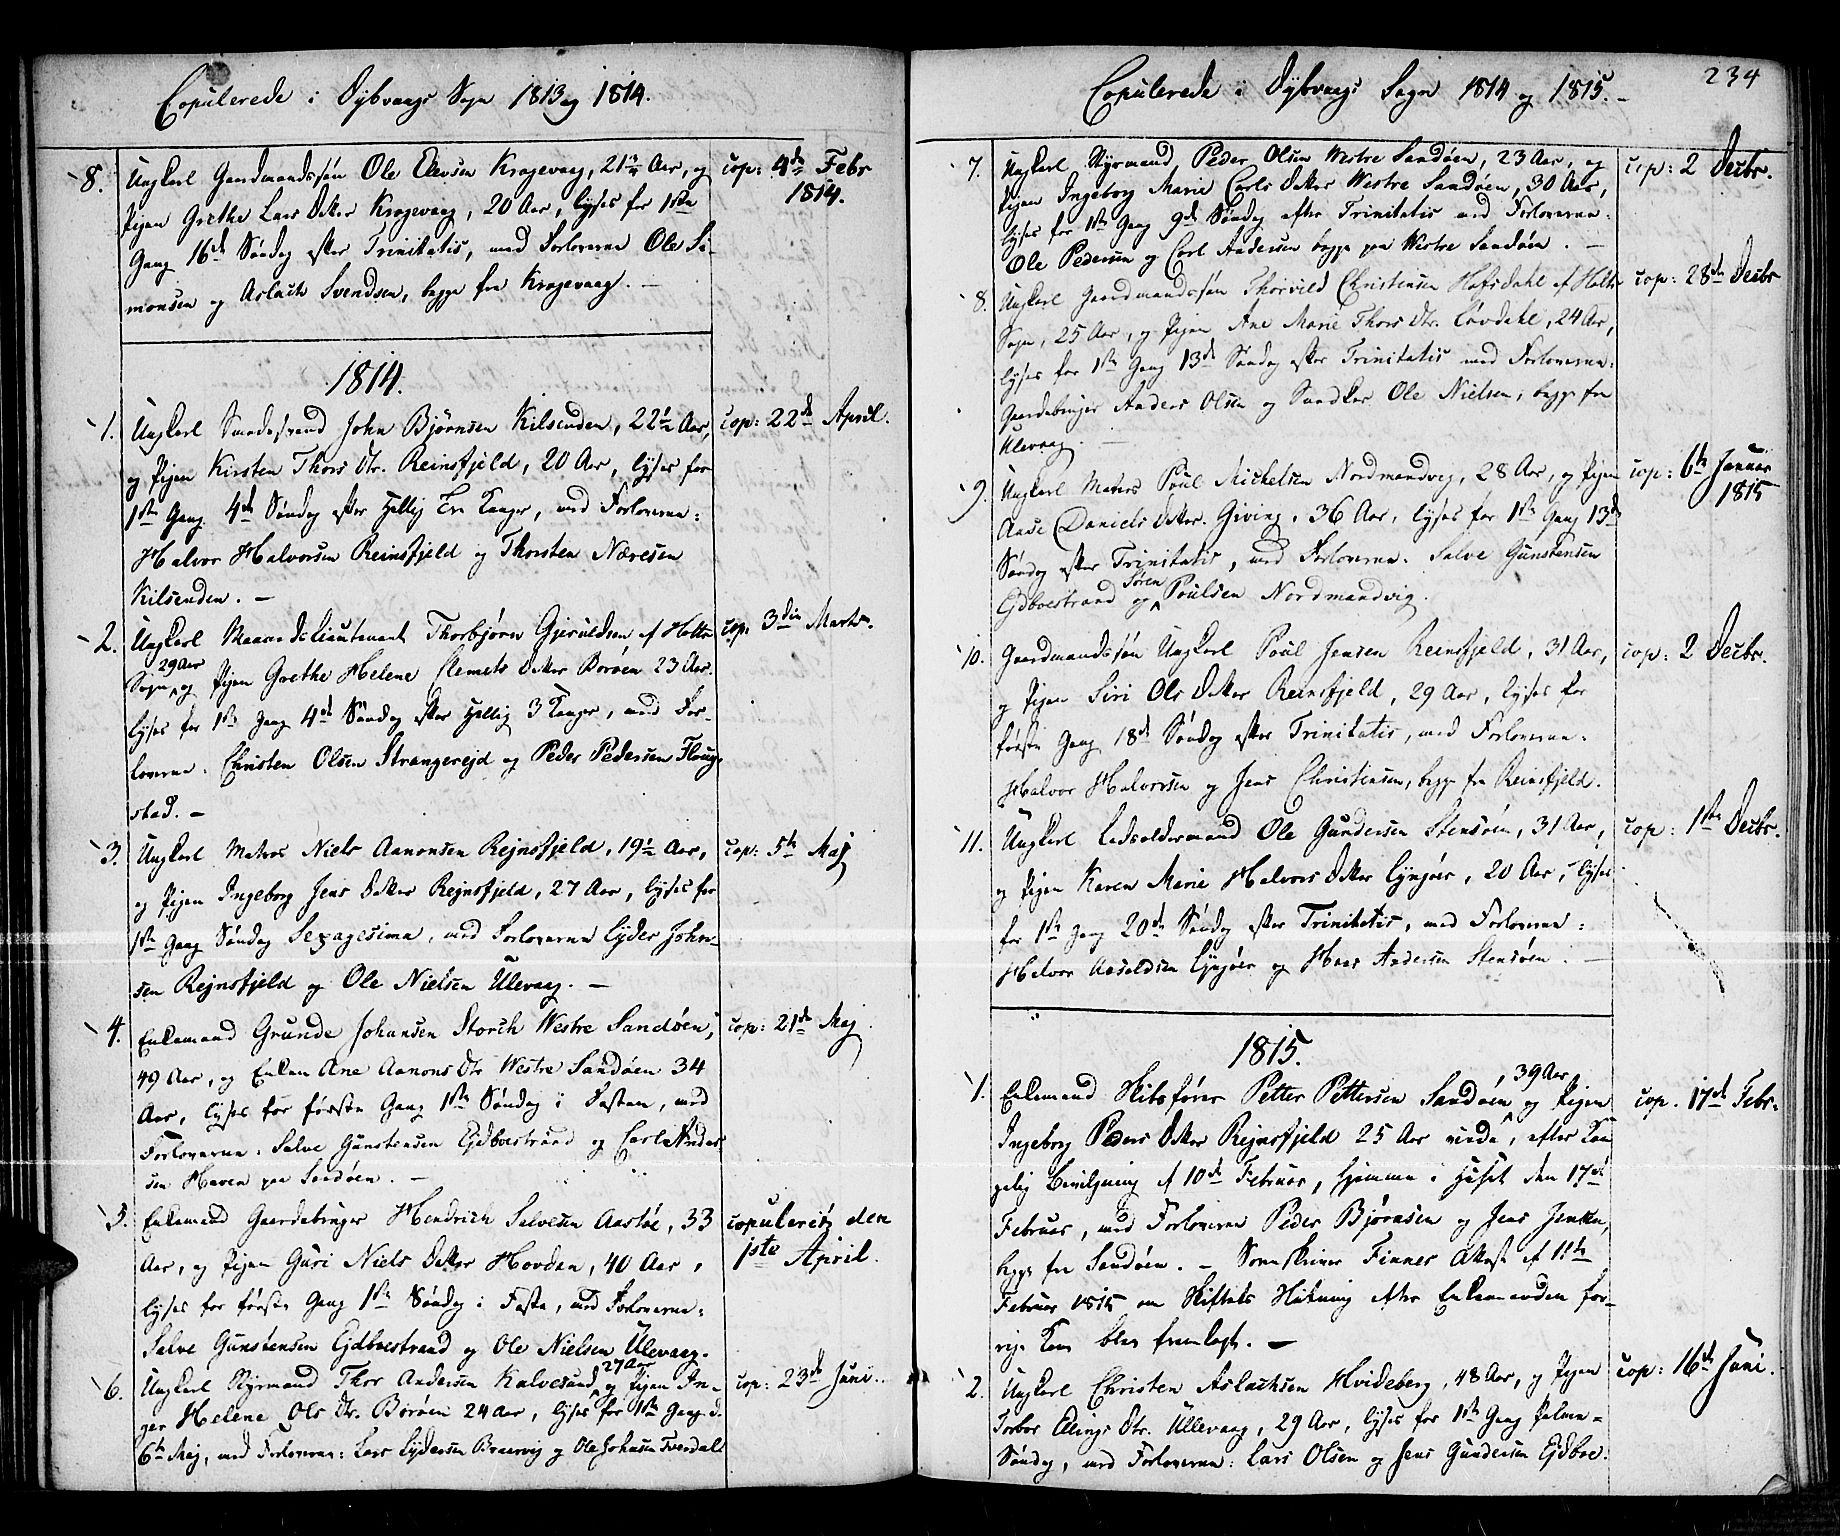 Copulerede i Dybvaags Sogn 1813 og 1814.
8. Ungkarl Gaardmandssøn Ole Elevsen Kragevaag, 21 1/2 Aar, og
Pigen Grethe Lars Datter Kragevaag, 20 Aar, lyses for 1ste
Gang 16de Søndag efter Trinitatis, med Forloverne Ole Sa-
monsen og Aslach Svendsen, begge fra Kragevaag. —
cop: 4de Febr
1814.
1814.
1. Ungkarl John Bjørnsen Kilsenden, 22 1/2 Aar,
og Pigen Kirsten Thors Dtr. Reinsfjeld, 20 Aar, lyses for
1ste Gang 4de Søndag efter Hellig Tre Konger, med Forloverne:
Halvor Halvorsen Reinsfjeld og Thorsten Næresen
Kilsenden. —
cop: 22de April.
2. Ungkarl Maanedslieutenant Thorbjørn Gjeruldsen af Holts
Sogn 29 Aar og Pigen Grethe Helene Clemets Datter Borøen 23 Aar.
lyses for 1ste Gang 4de Søndag efter Hellig 3 Konger, med For-
loverne. Christen Olsen Strangereid og Peder Pedersen Flaug-
stad. —
cop: 3die Marts.
3. Ungkarl Matros Niels Aanonsen Rejnsfjeld, 19 1/2 Aar,
og Pigen Ingeborg Jens Datter Rejnsfjeld, 27 Aar, lyses for
1ste Gang Søndag Sexagesima, med Forloverne Lyder John-
sen Rejnsfjeld og Ole Nielsen Ulevaag. —
cop: 5te Maj
4. Enkemand Grunde Johansen Storch Westre Sandøen,
49 Aar, og Enken Ane Aanons Dtr Westre Sandøen 34
Aar, lyses for første Gang 1ste Søndag i Fasten, med
Forloverne: Salve Gunstensen Ejdboestrand og Carl Ander-
sen Haven paa Sandøen. —
cop: 21de Maj.
5. Enkemand Gaardebruger Hendrich Salvesen Aastøe, 33
Aar, og Pigen Guri Niels Datter Hovdan, 40 Aar,
lyses for første Gang 1ste Søndag i Faste, med Forloverne:
Salve Gunstensen Ejdboestrand og Ole Nielsen Ulevaag.
copulerit den
1ste April.
6. Ungkarl Styrmand Thor Andersen Kalvesund 27 Aar og Pigen In-
ger Helene Ols Dtr. Borøen 24 Aar, lyses for 1ste Gang d.
6te Maj, med Forloverne: Lars Lydersen Braarvig og Ole Johnsen Tverdal
cop: 23de Juni.
Copulerede i Dybvaags Sogn 1814 og 1815. —
234
7. Ungkarl Styrmand Peder Olsen Westre Sandøen, 23 Aar, og
Pigen Ingeborg Marie Carls Datter Westre Sandøen, 30 Aar,
lyses for 1ste Gang 9de Søndag efter Trinitatis med Forloverne:
Ole Pedersen og Carl Andersen begge paa Westre Sandøen. —
cop: 2 Decbr.
8. Ungkarl Gaardmandssøn Thorvild Christensen Hofsdahl af Holts
Sogn, 25 Aar, og Pigen Ane Marie Thors Dtr. Løvdahl, 24 Aar,
lyses for 1ste Gang 13de Søndag efter Trinitatis med Forloverne:
Gaardebruger Anders Olsen og Ole Nielsen, begge fra
Ulevaag. —
cop: 28de Decbr
9. Ungkarl Matros Poul Michelsen Nordmandvig, 28 Aar, og Pigen
Aase Daniels Datter. Giving, 36 Aar, lyses for 1ste Gang 13de
Søndag efter Trinitatis, med Forloverne. Salve Gunstensen
Ejdboestrand og Søren Poulsen Nordmandvig.
cop: 6te Januar
1815
10. Gaardmandssøn Ungkarl Poul Jensen Reinsfjeld, 31 Aar,
og Pigen Siri Ols Datter Reinsfjeld, 29 Aar, lyses for
første Gang 18de Søndag efter Trinitatis, med Forloverne:
Halvor Halvorsen og Jens Christensen, begge fra Reinsfjeld.
cop: 2 Decbr.
11. Ungkarl Ladsoldermand Ole Gundersen Stensøen, 31 Aar,
og Pigen Karen Marie Halvors Datter Lyngøer, 20 Aar, lyses
for 1ste Gang 20de Søndag efter Trinitatis, med Forloverne:
Halvor Aasoldsen Lyngøer og Hans Andersen Stensøen. —
cop: 1ste Decbr.
1815.
1. Enkemand Skibsfører Petter Pettersen Sandøen, 39 Aar, og Pigen
Ingeborg Peders Datter Rejnsfjeld 25 Aar viede, efter Kon
gelig Bevilgning af 10de Februar, hjemme i Huset den 17de
Februar, med Forloverne Peder Bjørnsen og Jens Jensen,
begge fra Sandøen. — Sorenskriver Finnes Attest af 11te
Februar 1815 om Skiftets Slutning efter Enkemanden for-
rige Kone blev fremlagt. —
cop. 17de Febr.
2. Ungkarl Christen Aslachsen Hvideberg, 48 Aar, og Pigen
Torbor Elings Dtr. Ullevaag, 29 Aar, lyses for 1ste Gang Palme-
Søndag, med Forloverne: Lars Olsen og Jens Gundersen Ejdboe.
cop: 16de Juni.